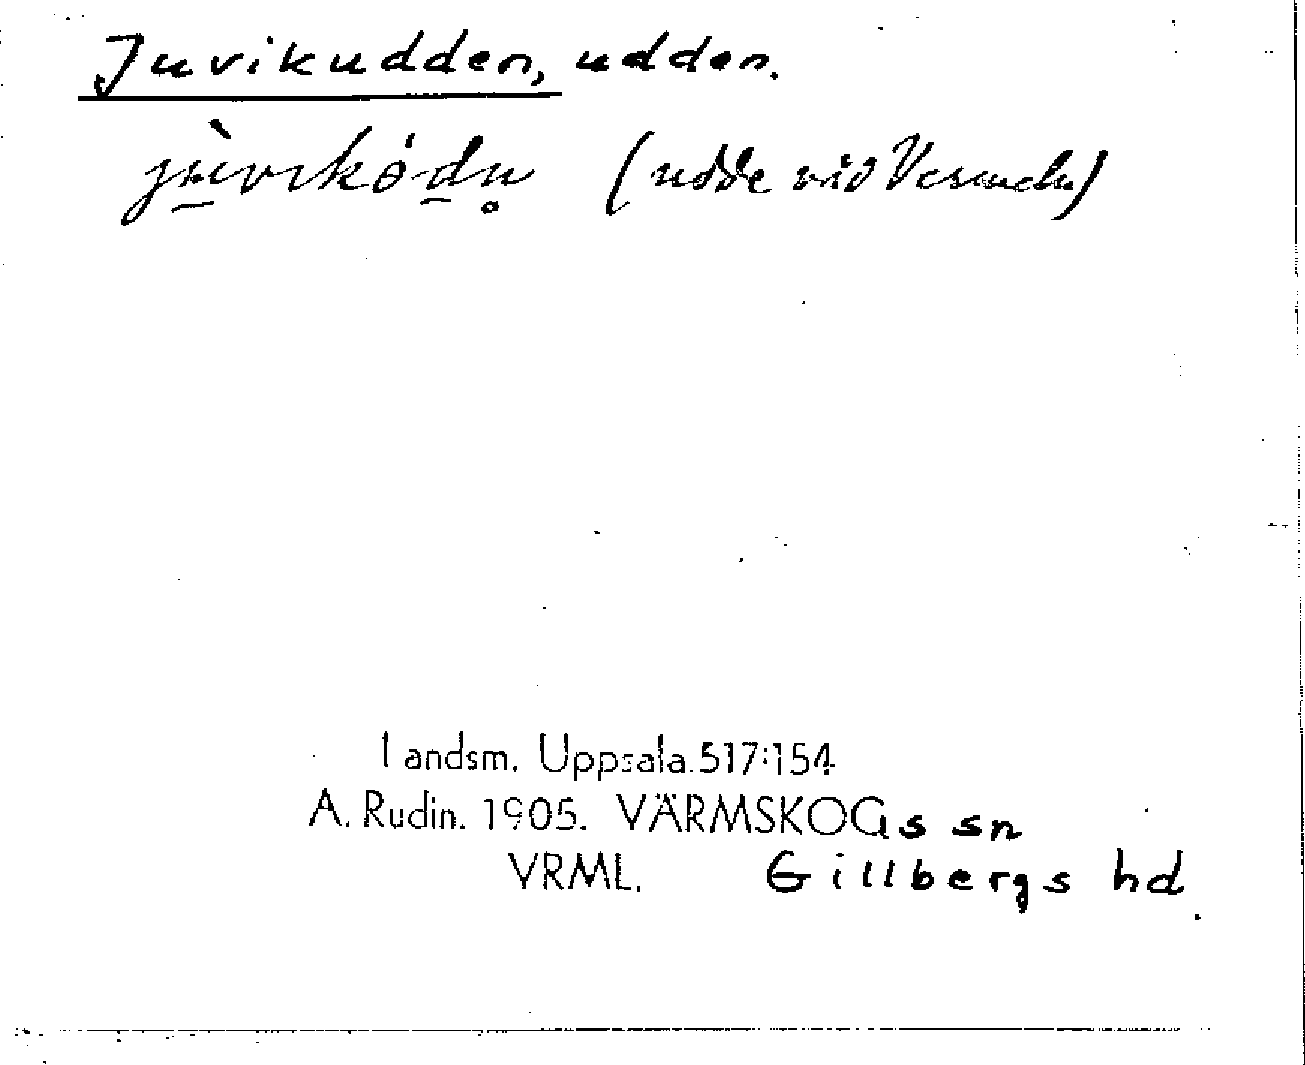 Juvikudden, udden.
jùvıkódn̥ (udde vid
Landsm. Uppsala.517:154
A. Rudin. 1905. VÄRMSKOGs sn
VRML. Gillbergs hd.